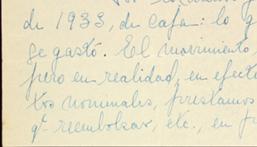 de 1933, de caja: lo q
se gastó. El movimiento
pero en realidad, en efect
tos nominales, préstamos
q' reembolsar, etc., en